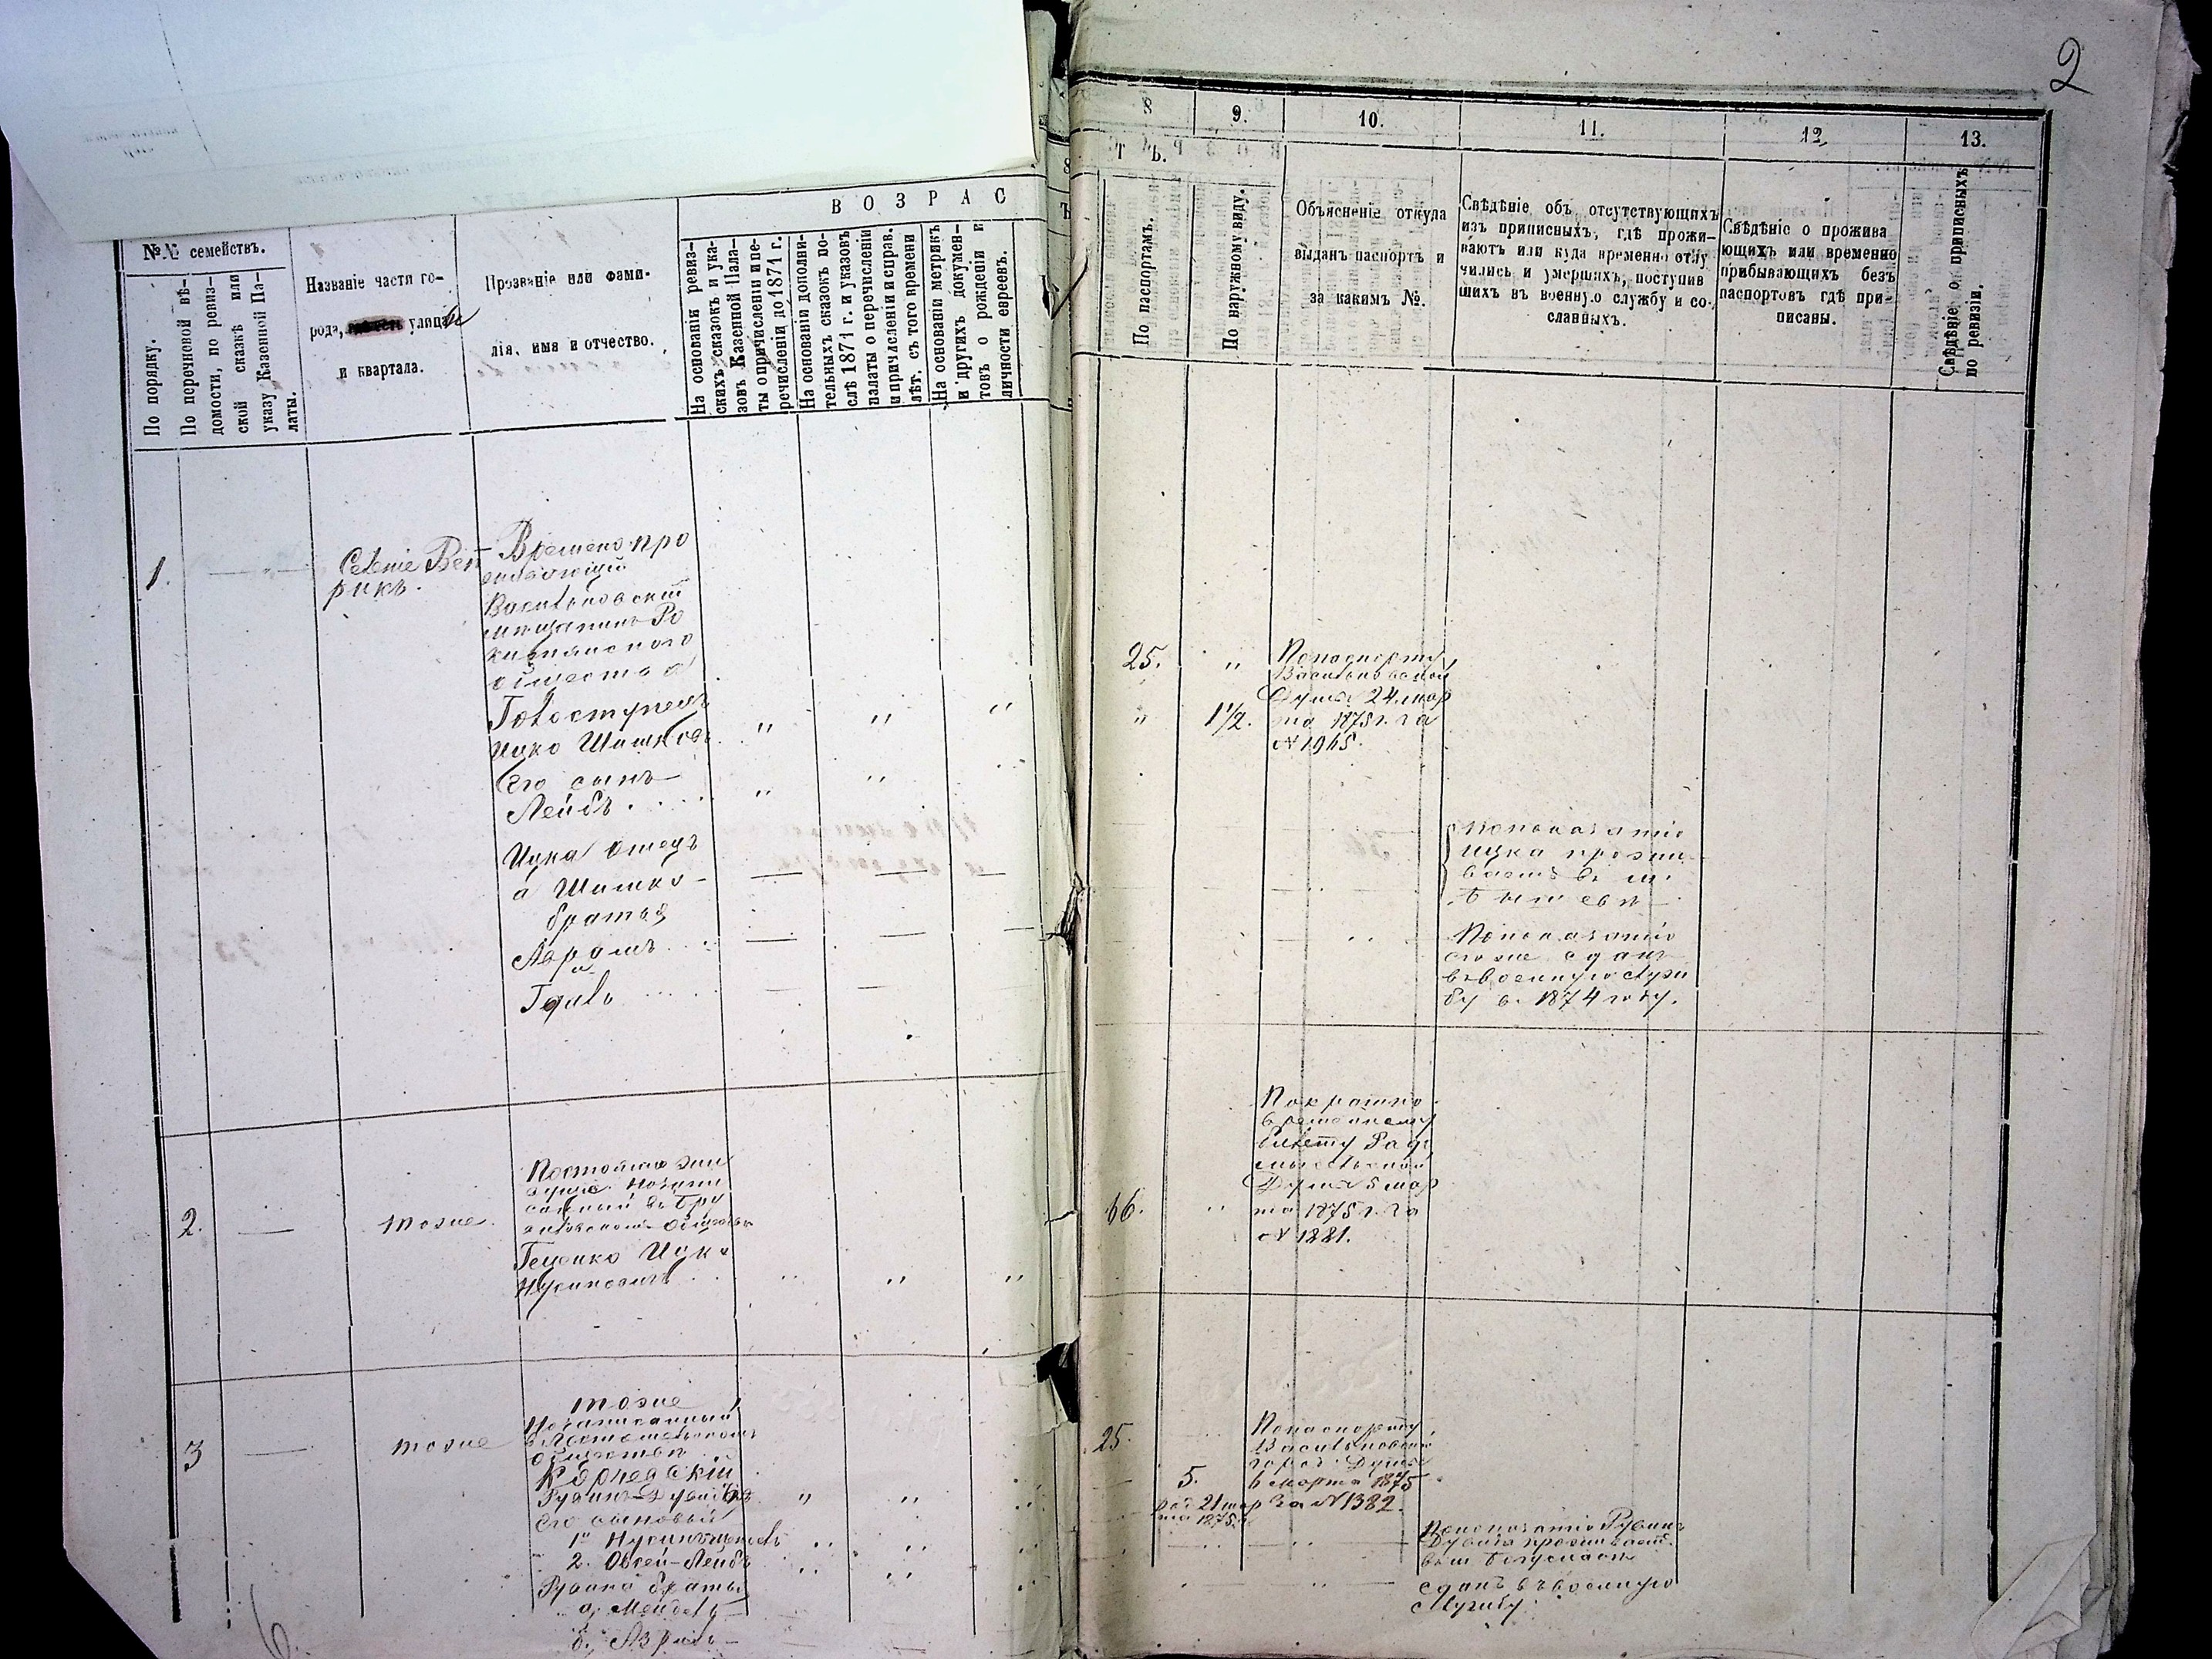 2
№№ семействъ.
По порядку.
По перечневой вѣ-
домости, по ревиз-
ской сказкѣ или
указу Казенной Па-
латы.
Названіе части го-
рода, улицы
и квартала.
Прозваніе или фами-
лія, имя и отчество.
ВОЗРАС
На основаніи ревиз-
скихъ сказокъ и ука-
зовъ Казенной Пала-
ты о причисленіи и пе-
речисленіи до 1871 г.
На основаніи дополни-
тельныхъ сказокъ по-
слѣ 1871 г. и указовъ
палаты о перечисленіи
и причисленіи и справ.
лѣт. съ того времени
На основаніи метрикъ
и другихъ докумен-
товъ о рожденіи и
личности евреевъ.
1.
Селеніе Веп
рикъ.
Времено про
живающій
Васильковскій
мещанинъ Ро
китнянскаго
общества
Ицко Шимковъ
Его сынъ
Лейбъ
Ицка Отецъ
а Шимко
братья
Аврамъ
и
2.
тоже.
Постоянно жи
Ицко
3
тоже
тоже
обществѣ
Его сыновья
2. Овсей-Лейбъ
братья
а, Мендель
б.
6.
8
9.
10.
11.
12.
13.
Т Ъ.
По паспортамъ.
По наружному виду.
Объясненіе откуда
выданъ паспортъ и
за какимъ №.
Свѣдѣніе объ отсутствующихъ
изъ приписныхъ, гдѣ прожи-
ваютъ или куда временно отлу
чились и умершихъ, поступив
шихъ въ военную службу и со-
сланныхъ.
Свѣдѣніе о прожива
ющихъ или временно
прибывающихъ безъ
паспортовъ гдѣ при-
писаны.
Свѣдѣніе о приписныхъ
по ревизіи.
25.
"
Попаспорту
Васильковской
Думы 24 мар
та 1875 г. за
№ 1965.
"
1 1/2.
Попоказанію
Ицка прожи
ваетъ въ м.
Попоказанію
егоже сданъ
въ военную служ
бу въ 1874 году.
Пократко
временному
билету Радо
мысльской
Думы 5 мар
та 1875 г. за
№ 1881.
66.
"
25.
Попаспорту
Васильковской
город. Думы
6 марта 1875
за № 1382.
5.
род 21 мар
та 1875 г.
Попоказанію Рувина
проживаетъ
въ м. Богуславѣ
сданъ въ военную
службу.